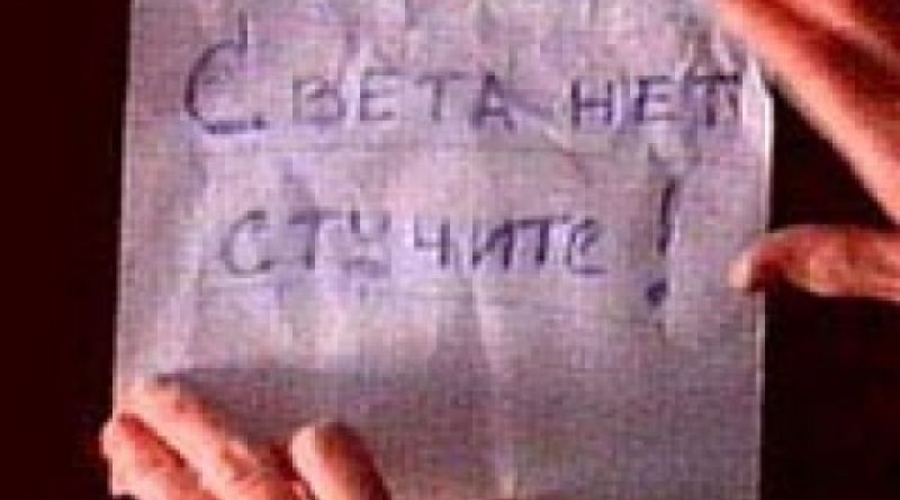 СВЕТА НЕТ
СТУЧИТЕ!